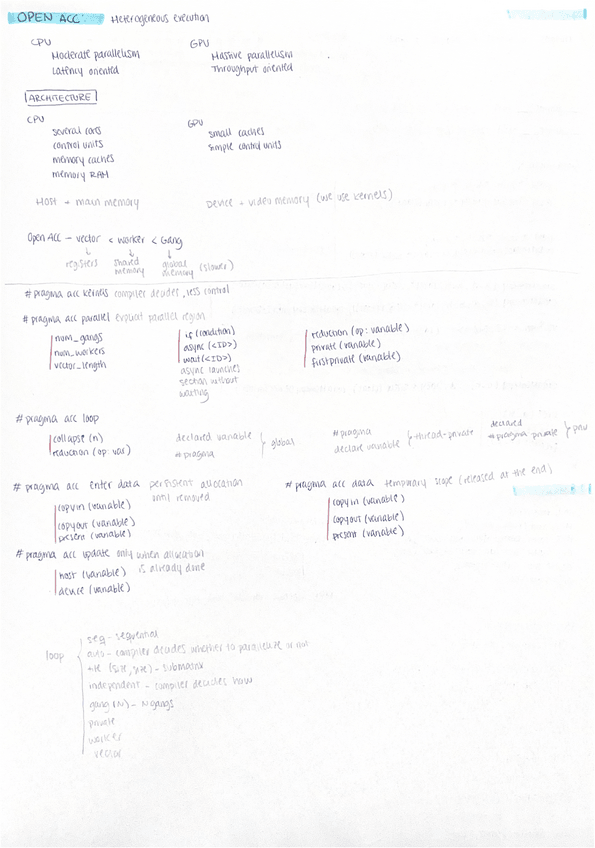 OPEN ACC: Heterogeneous execution
CPU
Moderate parallelism
Latency oriented
GPU
Massive parallelism
Throughput oriented
ARCHITECTURE
CPU
several cores
control units
memory caches
memory RAM
GPU
small caches
simple control units
Host + main memory
Device + video memory (we use kernels)
Open ACC - vector < worker < Gang
registers
shared memory
global memory (slower)
#pragma acc kernels compiler decides, less control
#pragma acc parallel explicit parallel region
num_gangs
num_workers
vector_length
if (condition)
async (<ID>)
wait (<ID>)
async launches
section without
waiting
reduction (op: variable)
private (variable)
firstprivate (variable)
#pragma acc loop
collapse (n)
reduction (op: var)
declared variable
#pragma
global
#pragma
declare variable
thread-private
declared
#pragma private
priv
#pragma acc enter data persistent allocation
until removed
copyin (variable)
copyout (variable)
present (variable)
#pragma acc data temporary scope (released at the end)
copyin (variable)
copyout (variable)
present (variable)
#pragma acc update only when allocation
is already done
host (variable)
device (variable)
loop
seq - sequential
auto - compiler decides whether to parallelize or not
tile (size, size) - submatrix
independent - compiler decides how
gang (N) - N gangs
private
worker
vector